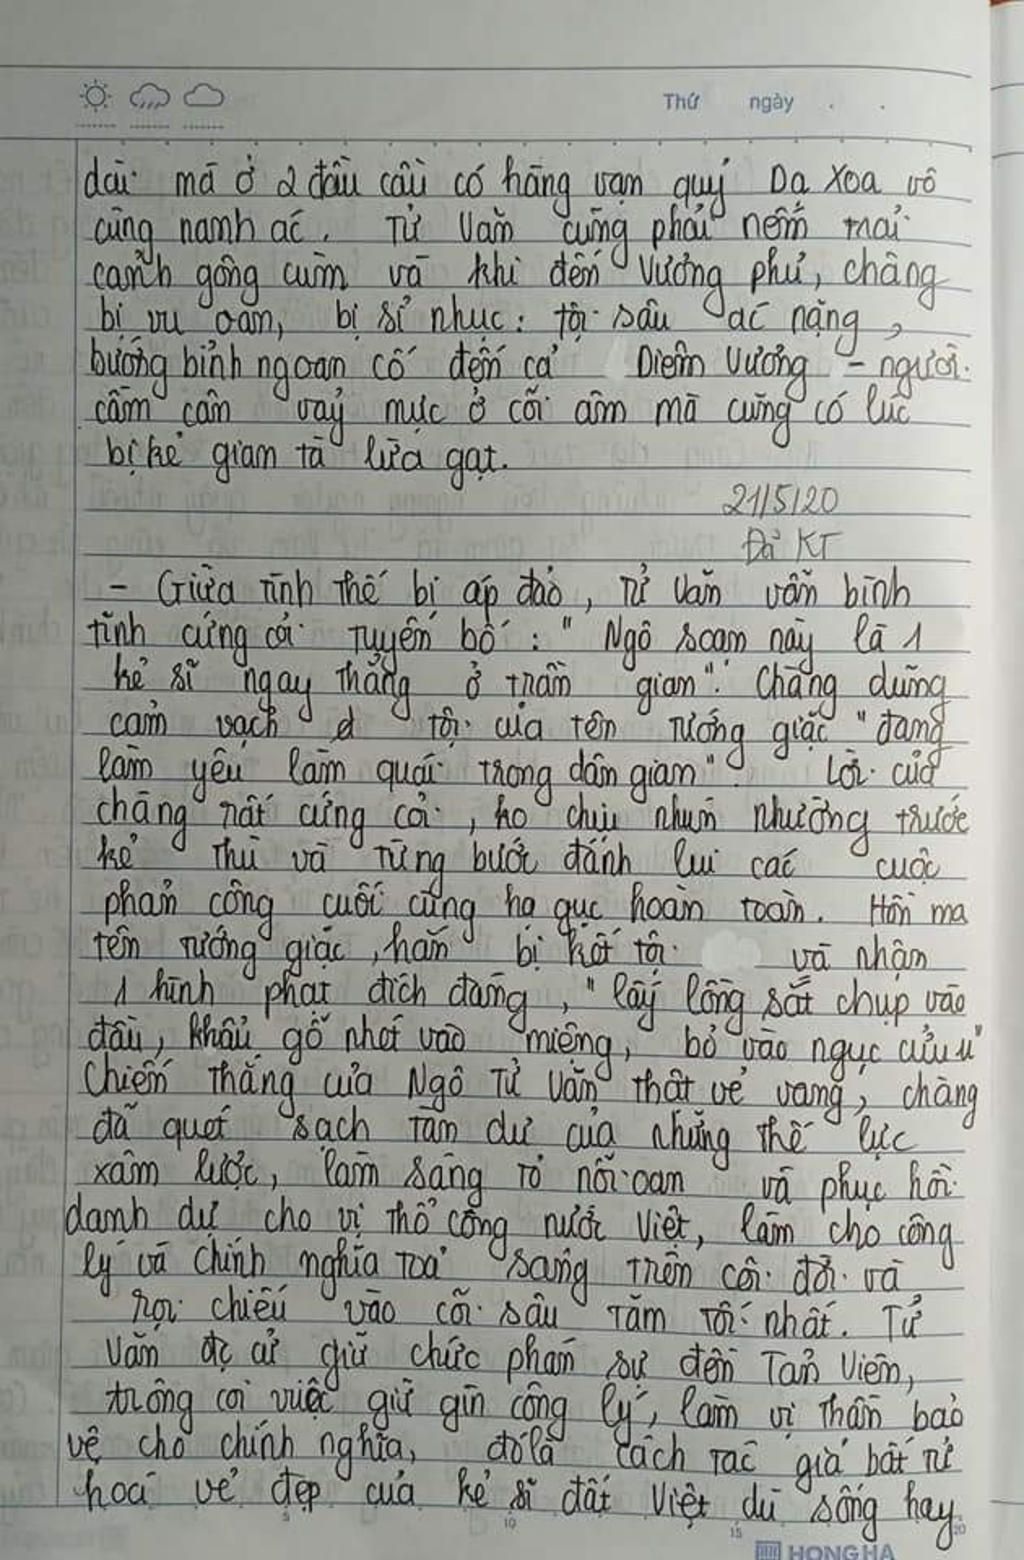 Thứ ngày . .
dài mà ở 2 đầu cầu có hàng vạn quỷ Dạ Xoa vô
cùng nanh ác. Tử Văn cũng phải nếm trải
cảnh gông cùm và khi đến Vương phủ, chàng
bị vu oan, bị sỉ nhục: tội sâu ác nặng,
bướng bỉnh ngoan cố đến cả Diêm Vương - người
cầm cân nảy mực ở cõi âm mà cũng có lúc
bị kẻ gian tà lừa gạt.
21/5/20
Đã KT
- Giữa tình thế bị áp đảo, Tử Văn vẫn bình
tĩnh cứng cỏi tuyên bố: "Ngô Soạn này là 1
kẻ sĩ ngay thẳng ở trần gian". Chàng dũng
cảm vạch tội của tên tướng giặc "đang
làm yêu làm quái trong dân gian". Lời của
chàng rất cứng cỏi, ko chịu nhún nhường trước
kẻ thù và từng bước đánh lui các cuộc
phản công cuối cùng hạ gục hoàn toàn. Hồn ma
tên tướng giặc, hắn bị kết tội và nhận
1 hình phạt đích đáng, "lấy lồng sắt chụp vào
đầu, khẩu gỗ nhét vào miệng, bỏ vào ngục cửu u"
Chiến thắng của Ngô Tử Văn thật vẻ vang, chàng
đã quét sạch tàn dư của những thế lực
xâm lược, làm sáng tỏ nỗi oan và phục hồi
danh dự cho vị thổ công nước Việt, làm cho công
lý và chính nghĩa toả sáng trên cõi đời và
rọi chiếu vào cõi sâu tăm tối nhất. Tử
Văn đc cử giữ chức phán sự đền Tản Viên,
trông coi việc giữ gìn công lý, làm vị thần bảo
vệ cho chính nghĩa, đó là cách tác giả bất tử
hoá vẻ đẹp của kẻ sĩ đất Việt dù sống hay
5 10 15 20
HONG HA